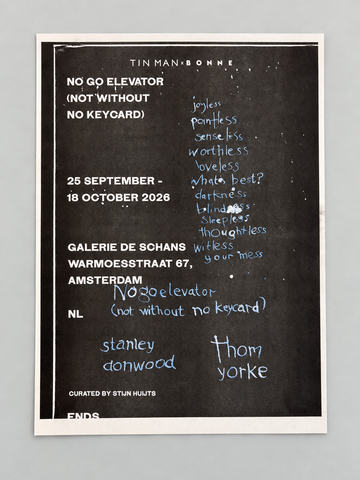 TIN MAN × BONNE
NO GO ELEVATOR
(NOT WITHOUT
NO KEYCARD)
25 SEPTEMBER -
18 OCTOBER 2026
GALERIE DE SCHANS
WARMOESSTRAAT 67,
AMSTERDAM
NL
joyless
pointless
senseless
worthless
loveless
whats best?
darkness
blindness
sleepless
thoughtless
witless
your mess
No go elevator
(not without no keycard)
stanley
donwood
thom
yorke
CURATED BY STIJN HUIJTS
ENDS